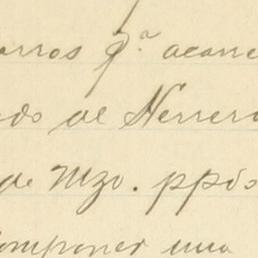 arros pª acarre
do al Herrero
de Mzo. ppdo
Componer una